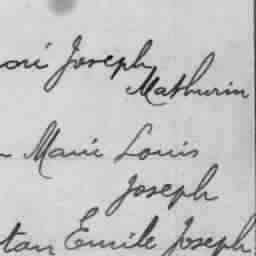 Joseph
Mathurin
Marie Louis
Joseph
Emile Joseph